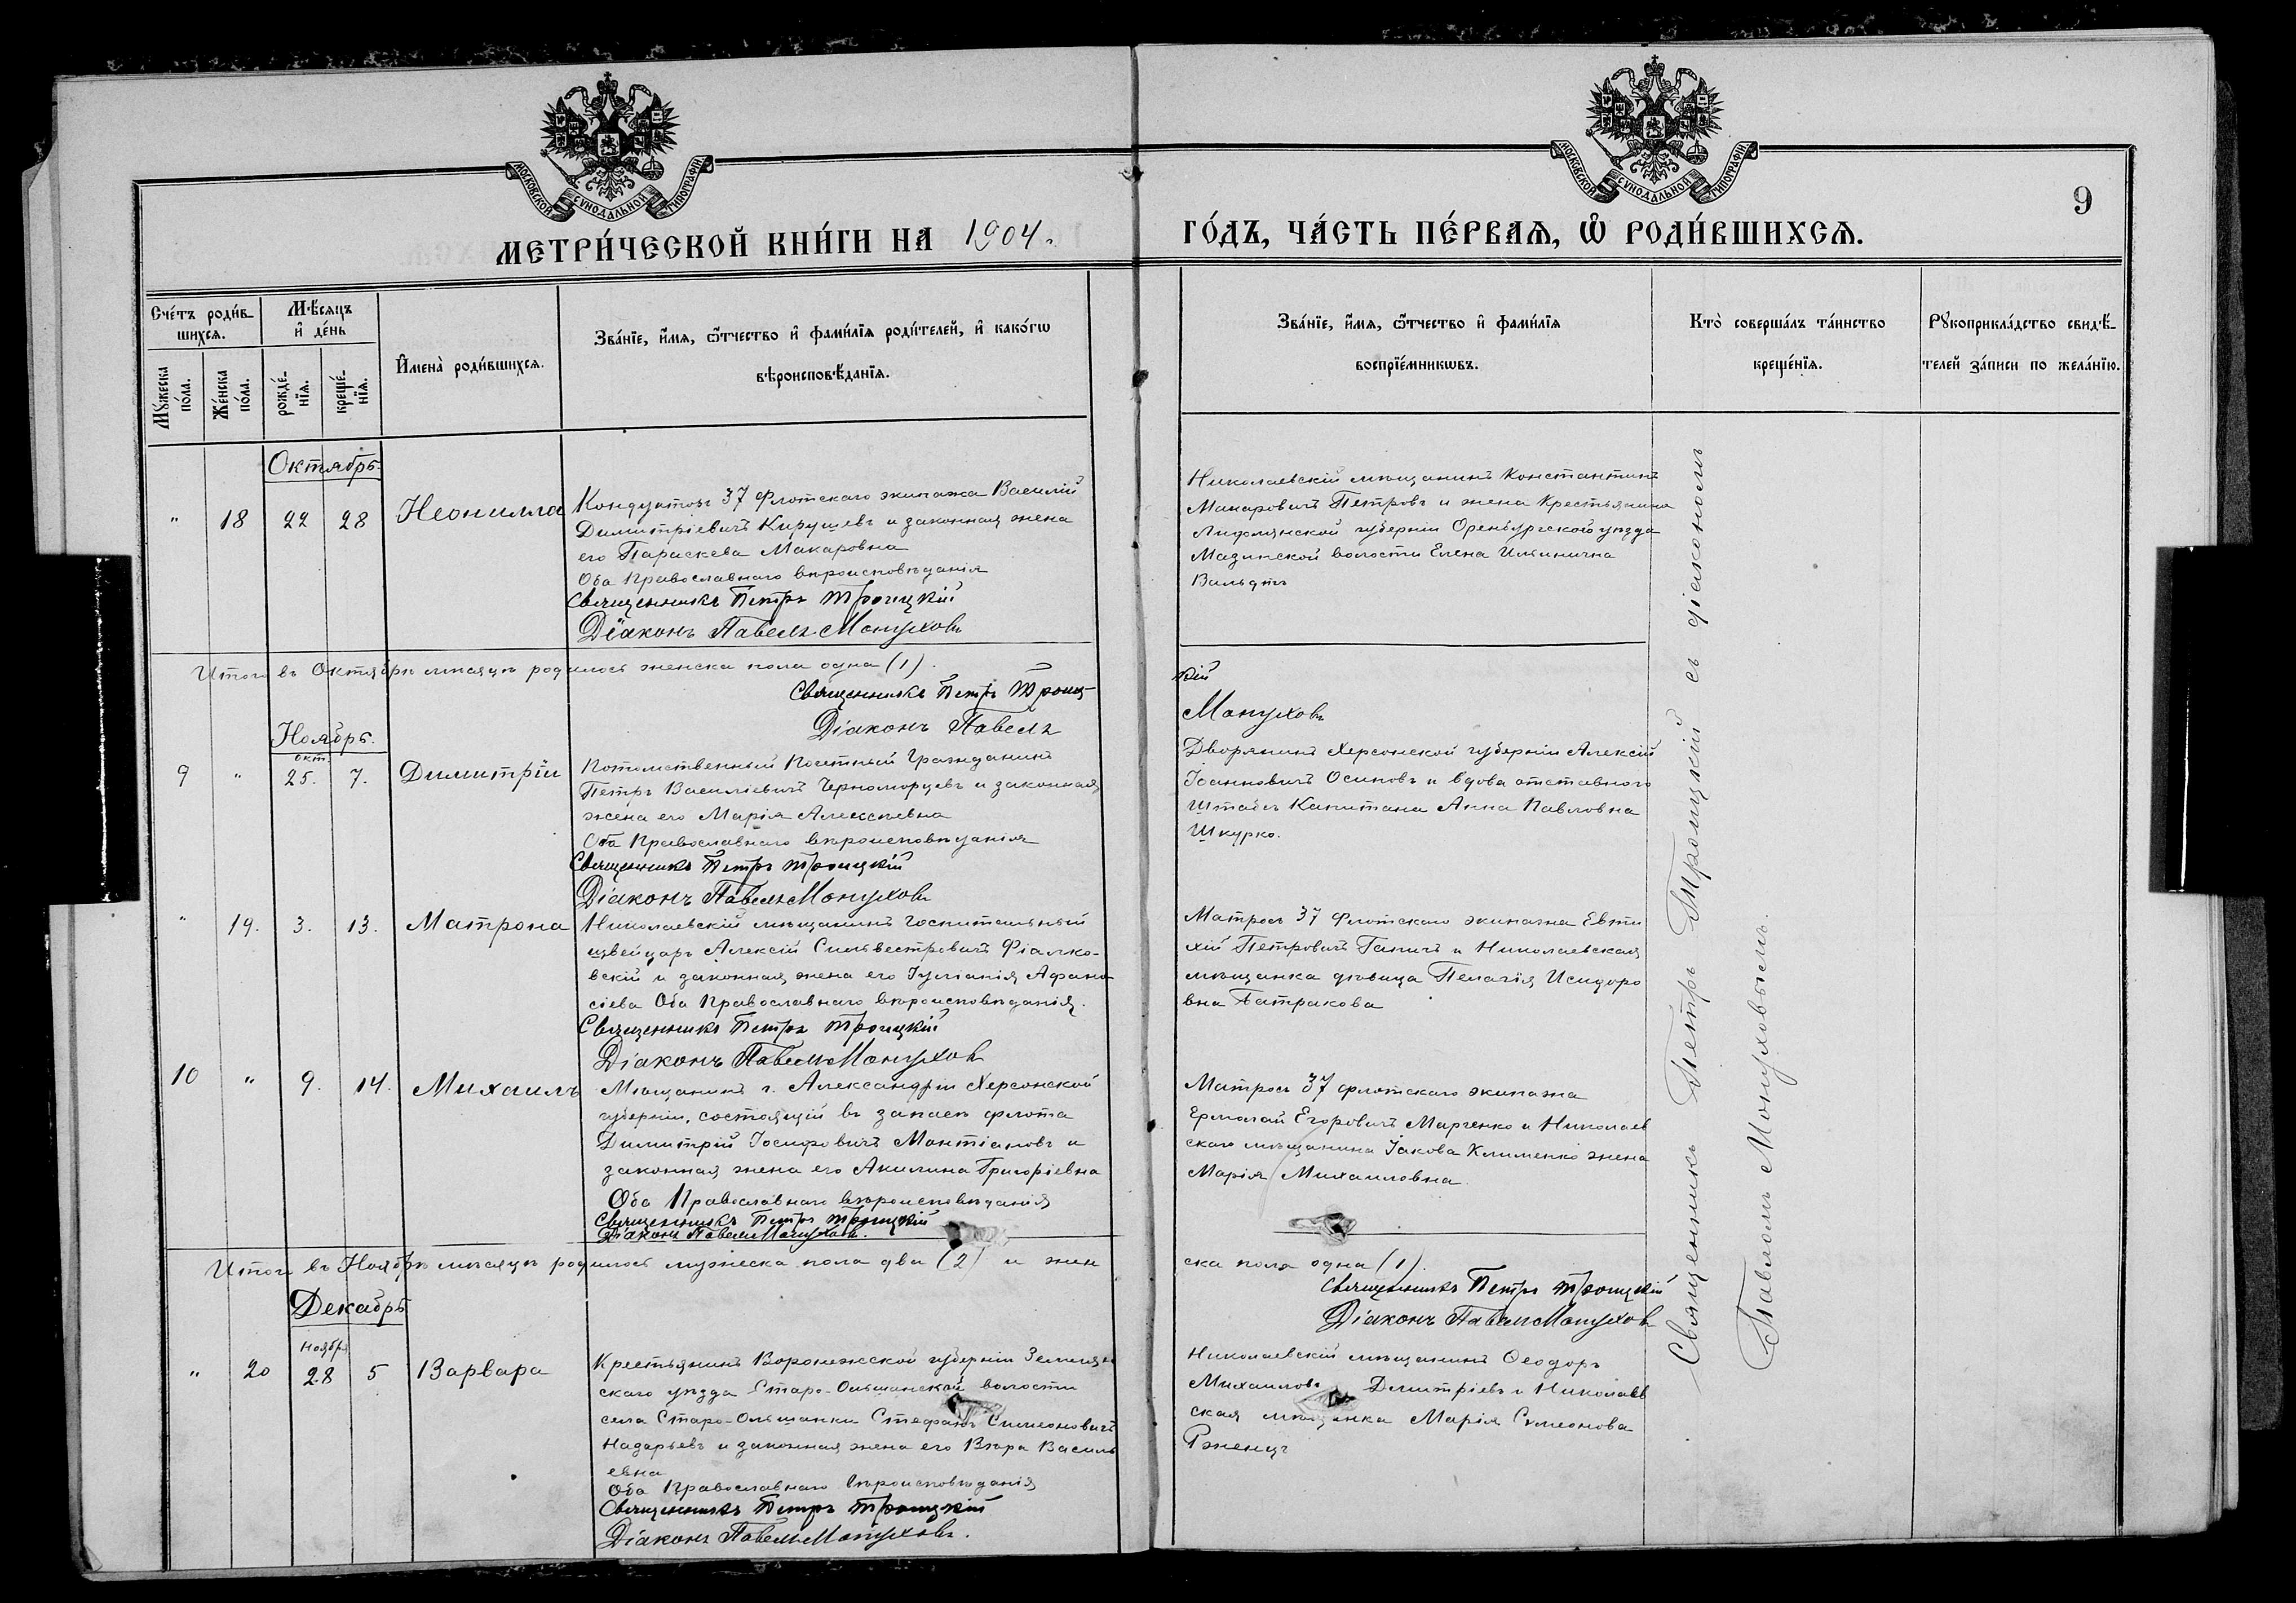 МОСКОВСКОЙ СѴНОДАЛЬНОЙ ТИПОГРАФІИ
МОСКОВСКОЙ СѴНОДАЛЬНОЙ ТИПОГРАФІИ
9
МЕТРИ́ЧЕСКОЙ КНИ́ГИ НА 1904. ГО́ДЪ, ЧА́СТЬ ПЕ́РВАѦ, Ѡ РОДИ́ВШИХСѦ.
Сче́тъ роди́в-
шихсѧ.
Мꙋ́жеска по́ла.
Же́нска по́ла.
Мѣ́сѧцъ
и де́нь
рожде́-
нїѧ.
креще́-
нїѧ.
Имена̀ роди́вшихсѧ.
Зва́нїе, и́мѧ, ѻ́тчество и фами́лїѧ роди́телей, и како́гѡ
вѣроисповѣ́данїѧ.
Зва́нїе, и́мѧ, ѻ́тчество и фами́лїѧ
воспрїе́мникѡвъ.
Кто̀ соверша́лъ та́инство
креще́нїѧ.
Рꙋкоприкла́дство свидѣ́-
телей за́писи по жела́нїю.
Октябрь
" 18 22 28 Неонилла
Кондукторъ 37 Флотскаго экипажа Василій
Димитріевичъ Кирушевъ и законная жена
его Параскева Макаровна
Оба Православнаго вѣроисповѣданія
Священникъ Петръ Троицкій
Діаконъ Павелъ Монуховъ
Николаевскій мѣщанинъ Константинъ
Макаровичъ Петровъ и жена Крестьянина
Лифлянской губерніи Оренбургскаго уѣзда
Мазинской волости Елена Ильинична
Вальдтъ
Итого въ Октябрѣ мѣсяцѣ родилось женска пола одна (1).
Священникъ Петръ Троиц-
кій
Діаконъ Павелъ
Монуховъ
Ноябрь.
9 " окт. 25. 7. Димитрій
Потомственный Почтный Гражданинъ
Петръ Василіевичъ Черноморцевъ и законная
жена его Марія Алексѣевна
Оба Православнаго вѣроисповѣданія
Священникъ Петръ Троицкій
Діаконъ Павелъ Монуховъ
Дворянинъ Херсонской губерніи Алексій
Іоанновичъ Осиповъ и вдова отставного
Штабсъ Капитана Анна Павловна
Шкурко.
" 19. 3. 13. Матрона
Николаевскій мѣщанинъ госпитальный
швейцаръ Алексій Сильвестровичъ Фіалко-
вскій и законная жена его Іуліанія Афана-
сіева Оба Православнаго вѣроисповѣданія.
Священникъ Петръ Троицкій
Діаконъ Павелъ Монуховъ
Матросъ 37 Флотскаго экипажа Евти
хій Петровичъ Ганичъ и Николаевская
мѣщанка дѣвица Пелагія Исидоро
вна Батракова
10 " 9. 14. Михаилъ
Мѣщанинъ г. Александріи Херсонской
губерніи, состоящій въ запасѣ флота
Димитрій Іосифовичъ Монтіановъ и
законная жена его Акилина Григоріевна
Оба Православнаго вѣроисповѣданія
Священникъ Петръ Троицкій
Діаконъ Павелъ Монуховъ.
Матросъ 37 флотскаго экипажа
Ермолай Егоровичъ Марченко и Николаев
скаго мѣщанина Іакова Клименко жена
Марія Михаиловна
Итого въ Ноябрѣ мѣсяцѣ родилось мужеска пола два (2) и жен
ска пола одна (1).
Священникъ Петръ Троицкій
Діаконъ Павелъ Монуховъ
Декабрь
" 20 Ноябр. 28 5 Варвара
Крестьянинъ Воронежской губерніи Землян
скаго уѣзда Старо-Ольшанской волости
села Старо-Ольшанки Стефанъ Симеоновичъ
Надарьевъ и законная жена его Вѣра Василь
евна
Оба Православнаго вѣроисповѣданія
Священникъ Петръ Троицкій
Діаконъ Павелъ Монуховъ.
Николаевскій мѣщанинъ Ѳеодоръ
Михаиловъ Димитріевъ и Николаев
ская мѣщанка Марія Симеонова
Рженцъ
Священникъ Петръ Троицкій съ діакономъ
Павломъ Монуховымъ.